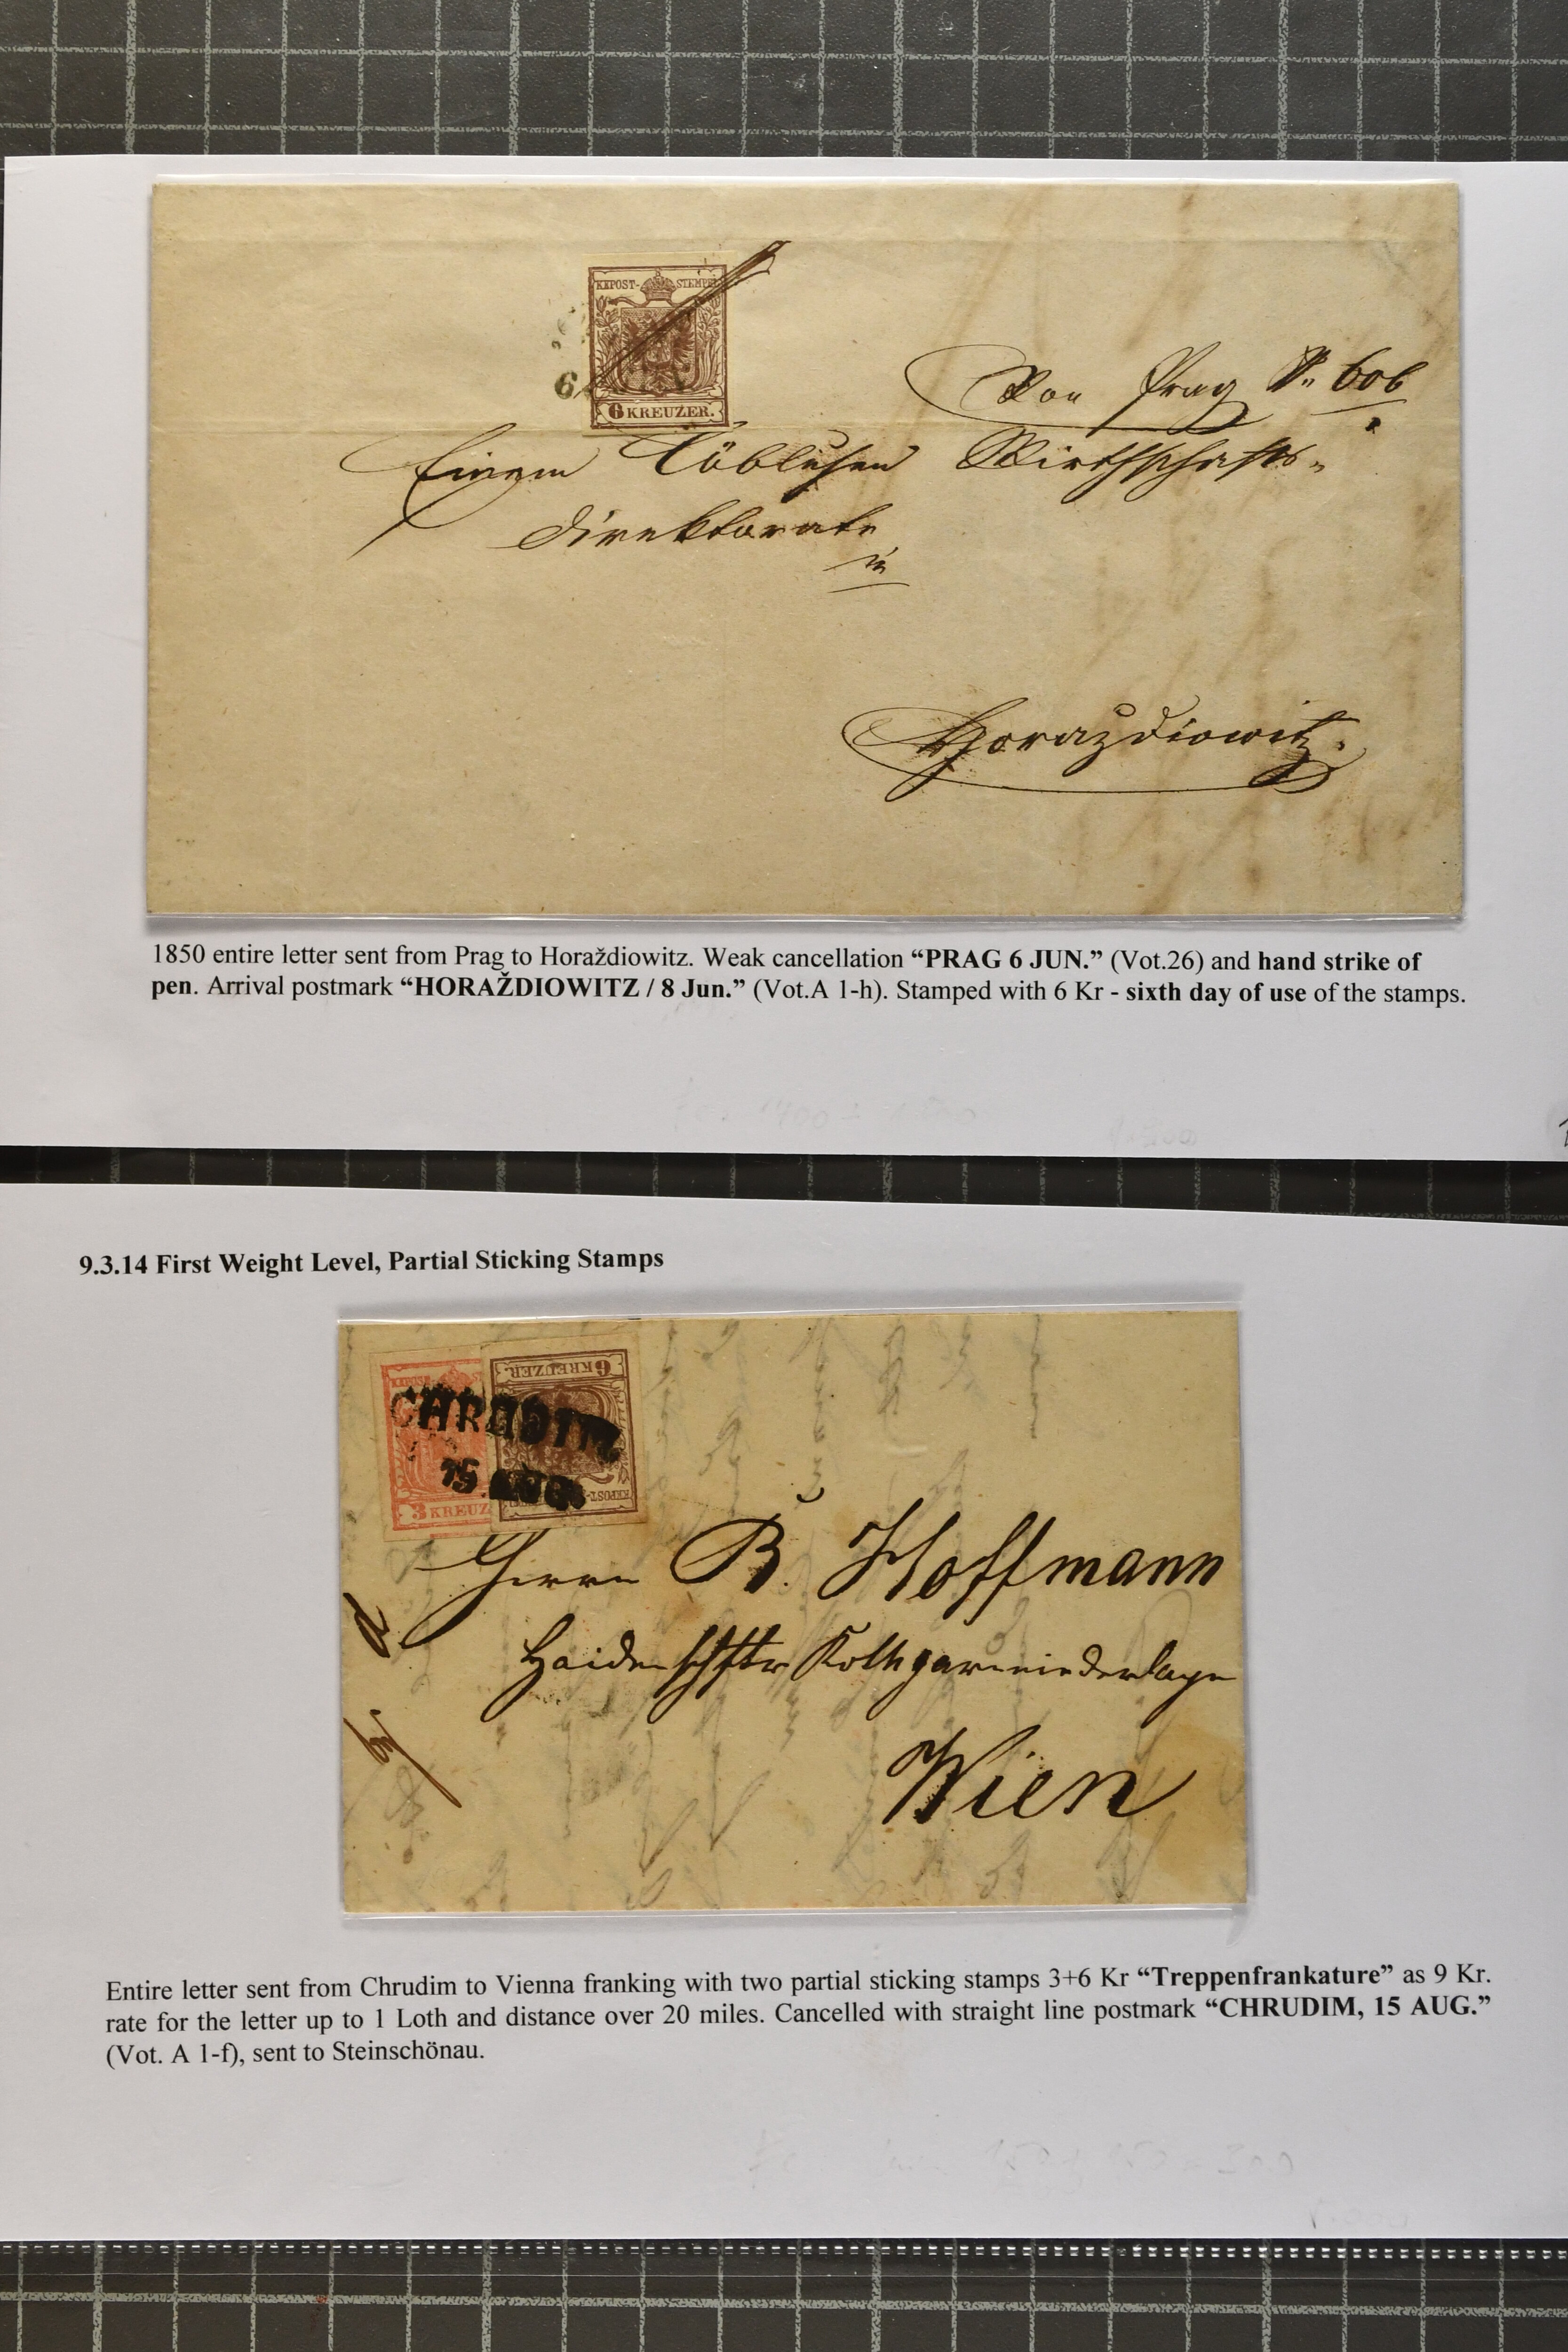 KKPOST-STEMPEL
6
6 KREUZER.
Von Prag No. 606
Einem Löblichen Wirthschafts-
direktorate
in
Horaždiowitz.
1850 entire letter sent from Prag to Horaždiowitz. Weak cancellation “PRAG 6 JUN.” (Vot.26) and hand strike of
pen. Arrival postmark “HORAŽDIOWITZ / 8 Jun.” (Vot.A 1-h). Stamped with 6 Kr - sixth day of use of the stamps.
9.3.14 First Weight Level, Partial Sticking Stamps
6 KREUZER.
CHRUDIM
15. AUG.
3 KREUZ
Herrn B. Hoffmann
Wien
Entire letter sent from Chrudim to Vienna franking with two partial sticking stamps 3+6 Kr “Treppenfrankature” as 9 Kr.
rate for the letter up to 1 Loth and distance over 20 miles. Cancelled with straight line postmark “CHRUDIM, 15 AUG.”
(Vot. A 1-f), sent to Steinschönau.